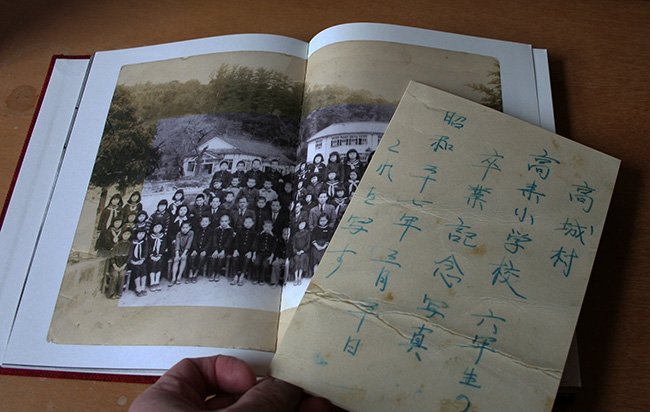 高城村
小学校 六年生の
卒業記念写真
昭和二十七年三月二十日
これを写す